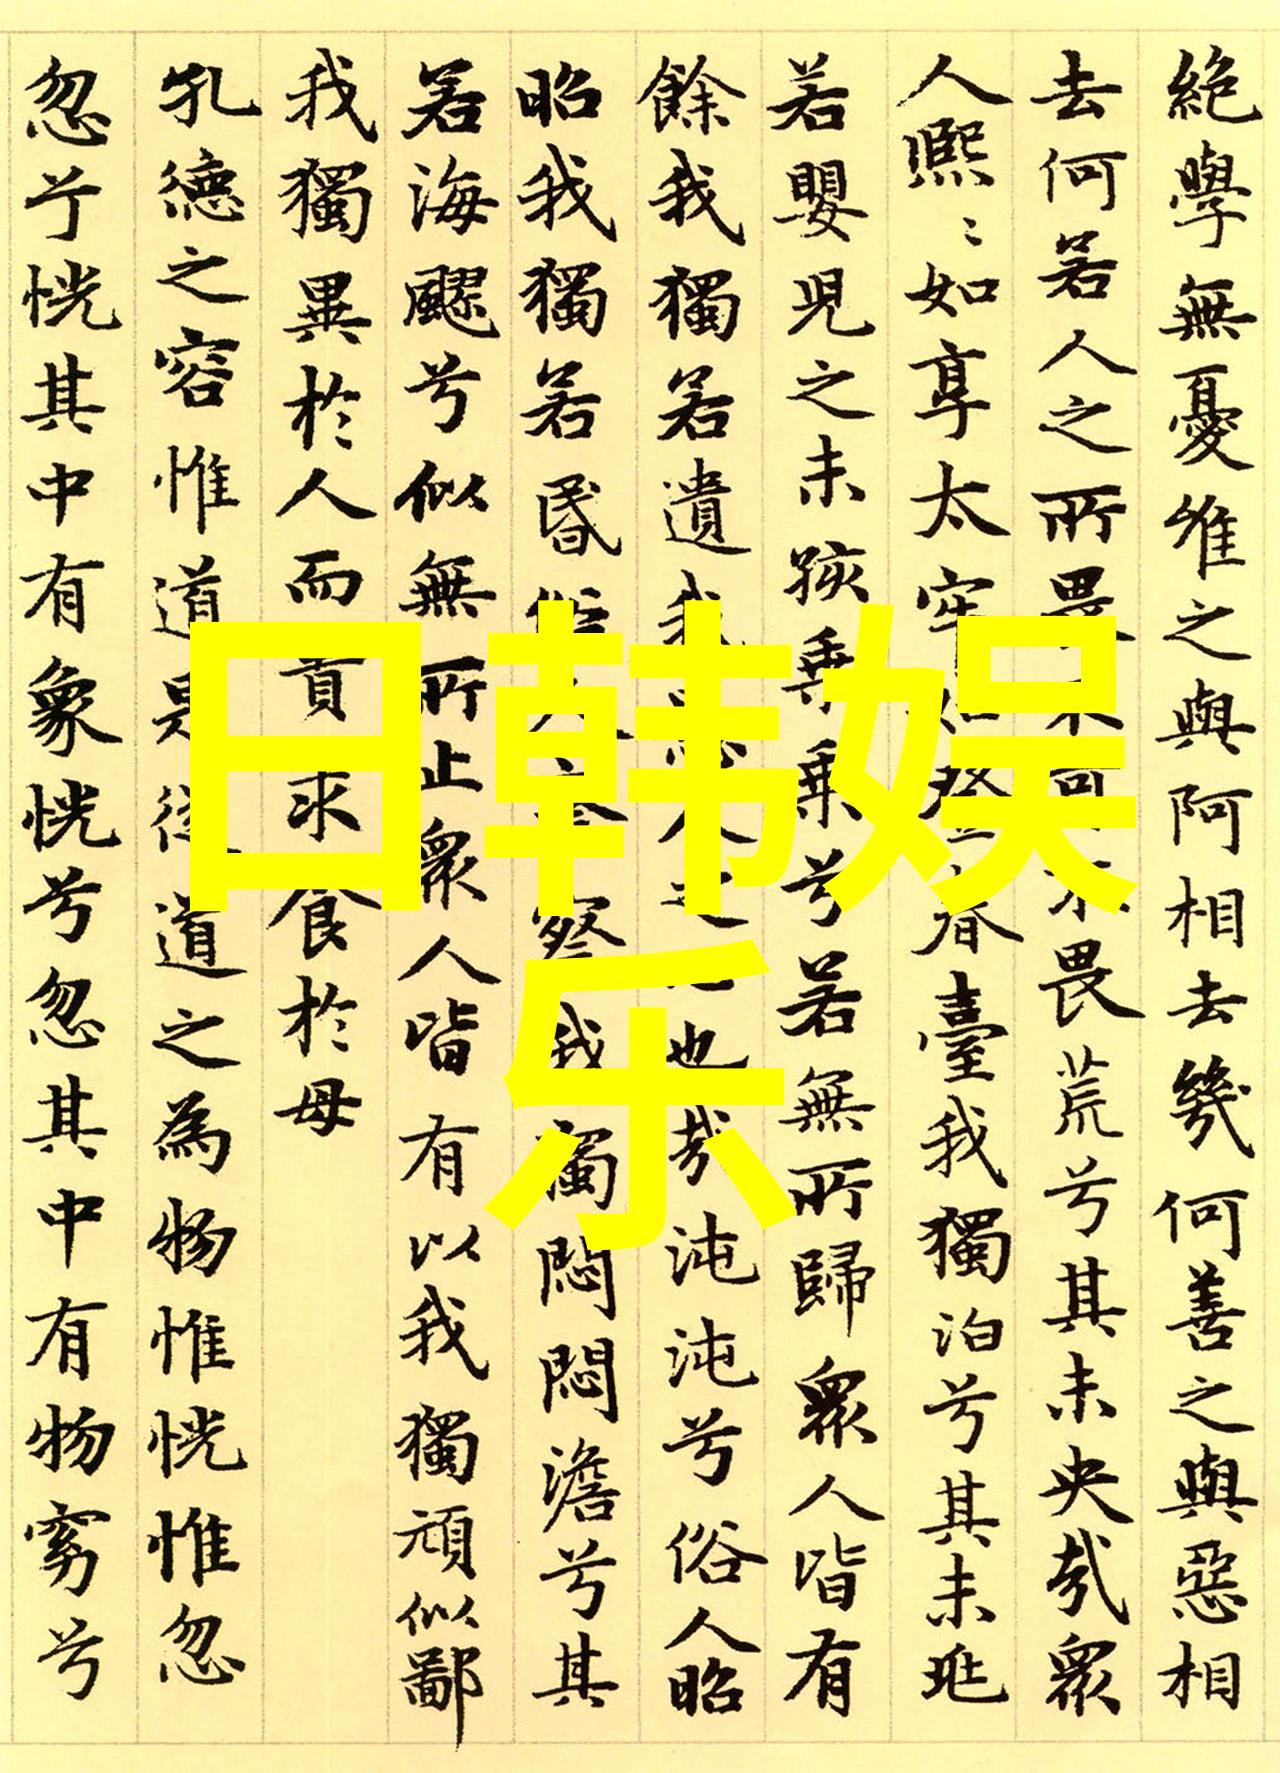 絶學無憂唯之與阿相去幾何善之與惡相
去何若人之所畏不可不畏荒兮其未央哉衆
人熙〻如享太牢如登春臺我獨泊兮其未兆
若嬰兒之未孩乗乗兮若無所歸衆人皆有
餘我獨若遺我愚人之心也哉沌沌兮俗人昭
昭我獨若昏俗人察察我獨悶悶澹兮其
若海飂兮似無所止衆人皆有以我獨頑似鄙
我獨異於人而貴求食於母
孔德之容惟道是從道之為物惟恍惟忽
忽兮恍其中有象恍兮忽其中有物窈兮
日韩娱
乐